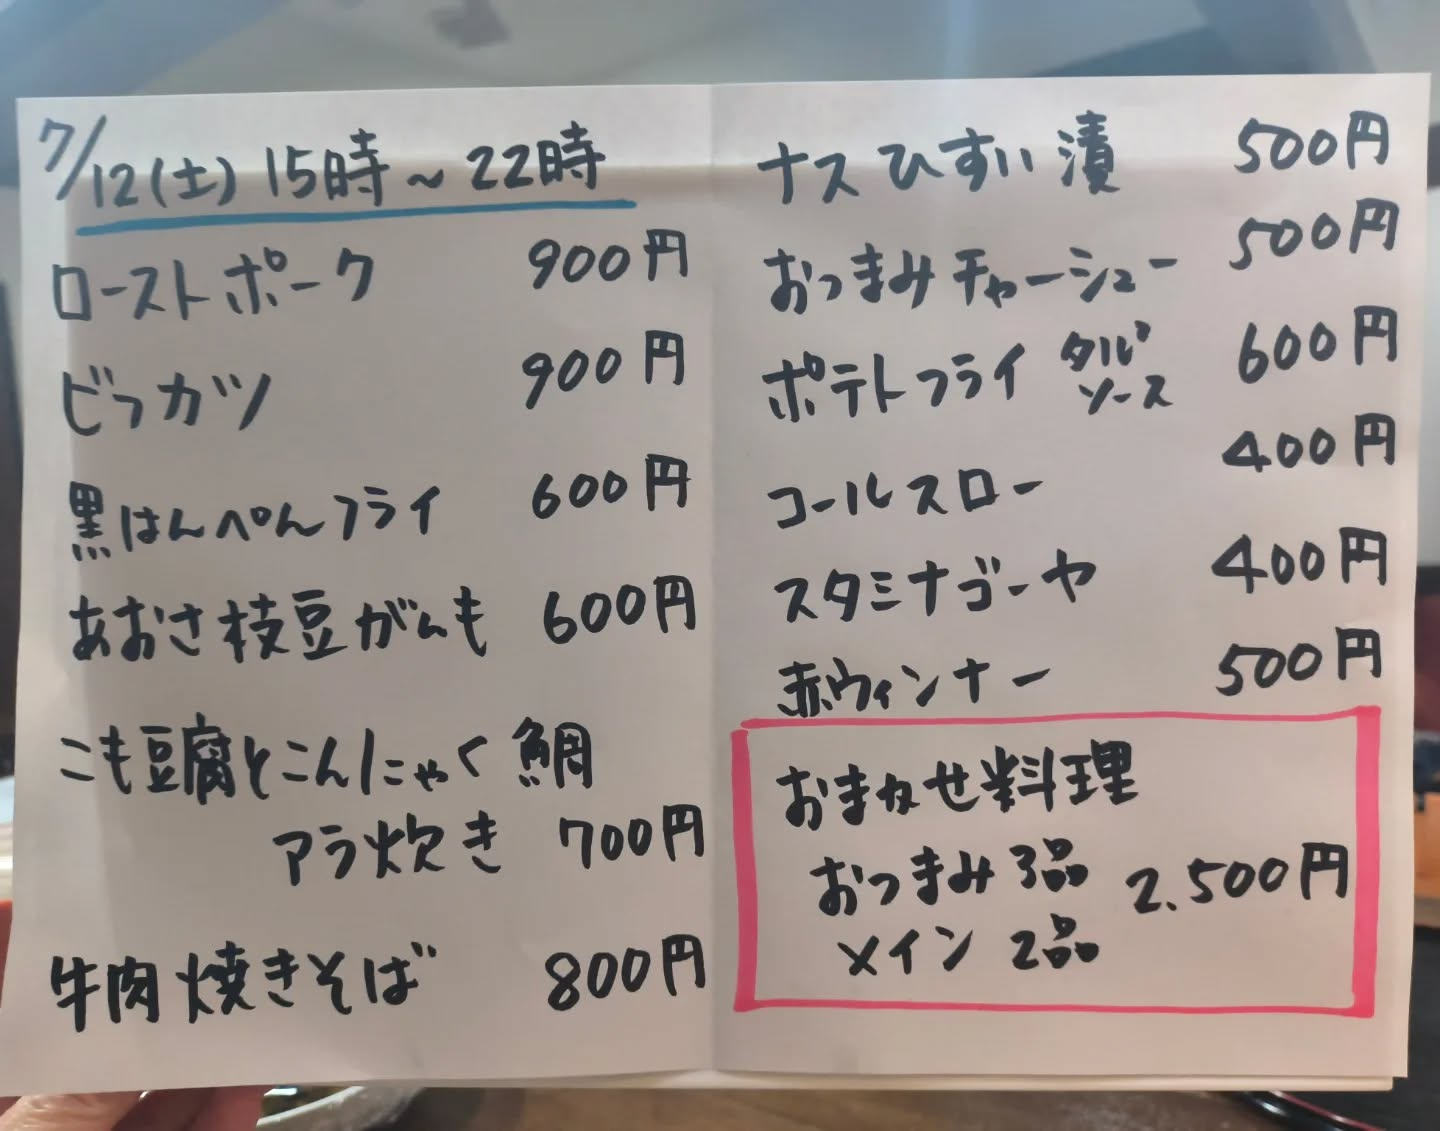 7/12(土) 15時～22時
ローストポーク 900円
ビフカツ 900円
黒はんぺんフライ 600円
あおさ枝豆がんも 600円
こも豆腐とこんにゃく鯛
アラ炊き 700円
牛肉焼きそば 800円
ナスひすい漬 500円
おつまみチャーシュー 500円
ポテトフライ タルタルソース 600円
コールスロー 400円
スタミナゴーヤ 400円
赤ウィンナー 500円
おまかせ料理
おつまみ3品 2.500円
メイン2品